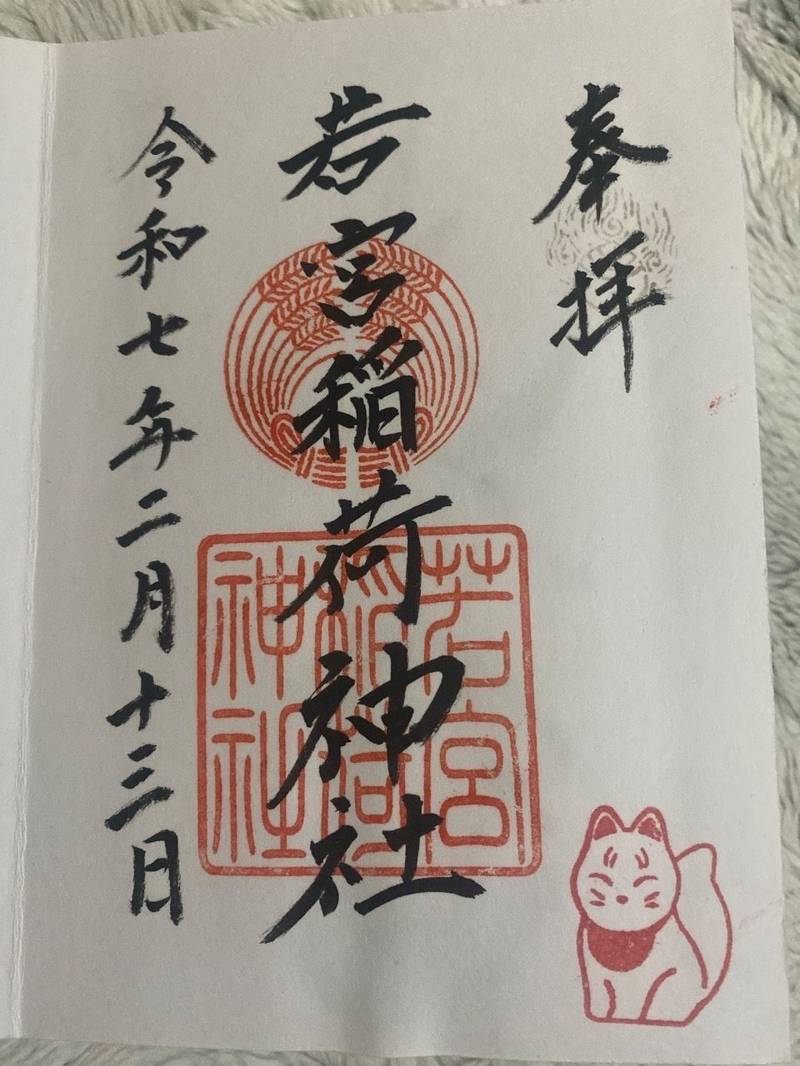 奉拝
若宮稲荷神社
若宮
稲荷
神社
令和七年二月十三日